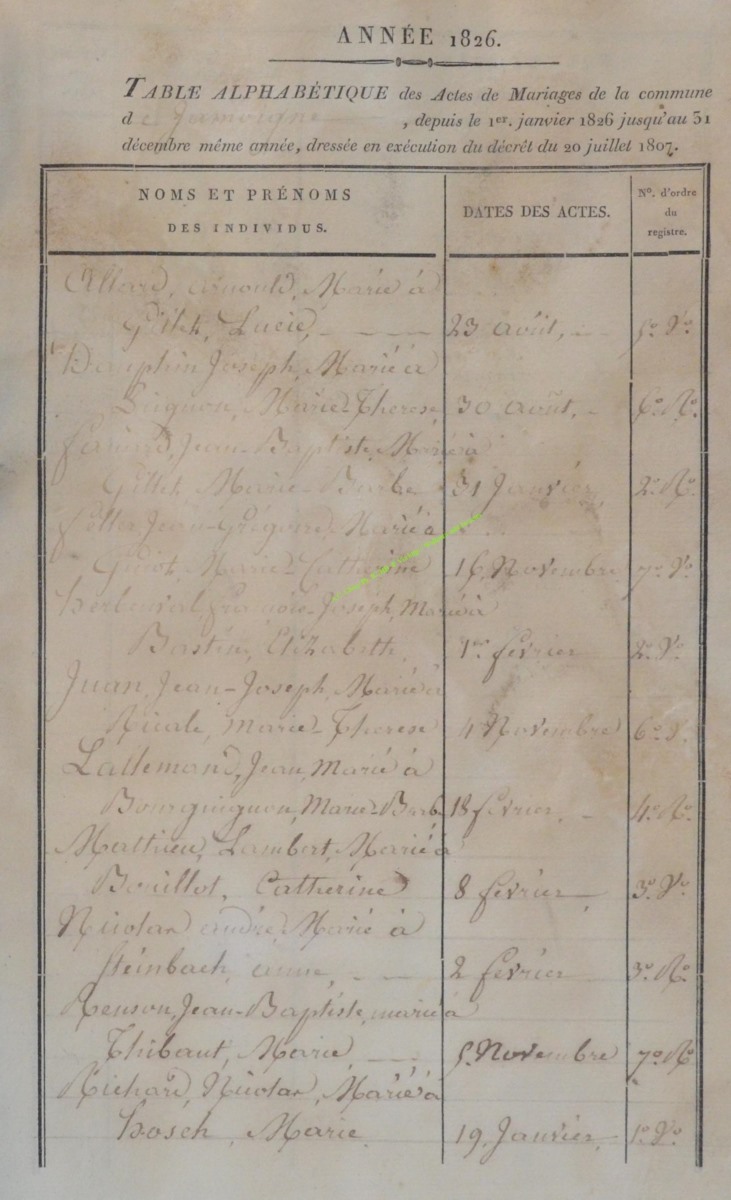 ANNÉE 1826.
TABLE ALPHABÉTIQUE des Actes de Mariages de la commune
de Jamoigne, depuis le 1er. janvier 1826 jusqu'au 31
décembre même année, dressée en exécution du décrét du 20 juillet 1807.
NOMS ET PRÉNOMS
DES INDIVIDUS.
DATES DES ACTES.
No. d'ordre
du
registre.
Allard, Arnould, Marié à
Gillet, Lucie, 23 août, 5o. Vo.
Dauphin Joseph, Marié à
Marie-Therese 30 août, 6o. Ro.
Jean-Baptiste, Marié à
Gillet, Marie-Barbe 31 Janvier 2o. Ro.
Feller Jean-Grégoire, Marié à
Guiot, Marie-Catherine 16 Novembre 7o. Vo.
François-Joseph, Marié à
Bastin, Elizabeth 1er février 2o. Vo.
Juan, Jean-Joseph, Marié à
Marie-Therese 4 Novembre 6o. V.
Lallemand, Jean, Marié à
Bourguignon, Marie-Barb. 18 février. 4o. Ro.
Mathieu, Lambert, Marié à
Bouillot, Catherine 8 février, 3o. Vo.
Nicolas andré Marié à
Steinbach, anne, 2 février 3o. Ro.
Renson, Jean-Baptiste, marié à
Thibaut, Marie 5 Novembre 7o. Ro
Richard, Nicolas, Marié à
hosch, Marie 19, Janvier, 1o. Vo.